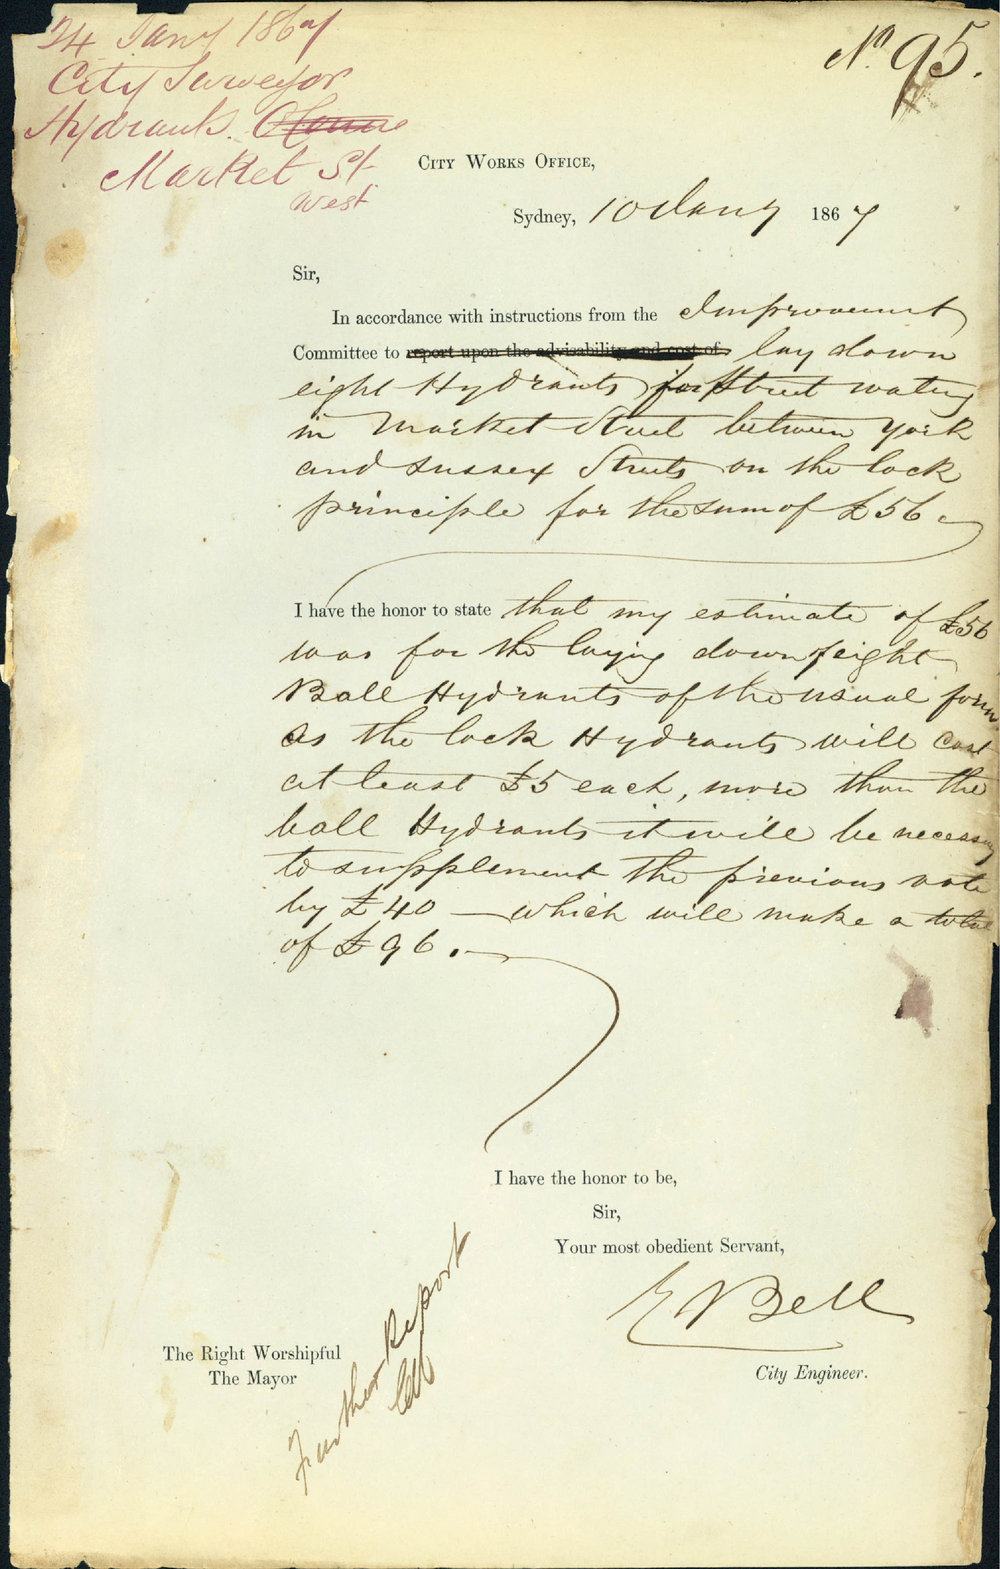 24 Jany 1867
City Surveyor
Hydrants
Market St
West
No 95.
City Works Office,
Sydney, 10 Jany 1867
Sir,
In accordance with instructions from the Improvement
Committee to report upon the advisability and cost of lay down
eight Hydrants for Street watering
in Market Street between York
and Sussex Streets on the lock
principle for the sum of £56.
I have the honor to state that my estimate of £56
was for the laying down of eight
Ball Hydrants of the usual form
As the lock Hydrants will cost
at least £5 each, more than the
ball Hydrants it will be necessary
to supplement the previous vote
by £40 — which will make a total
of £96.
I have the honor to be,
Sir,
Your most obedient Servant,
E Bell
City Engineer.
The Right Worshipful
The Mayor
Further Report